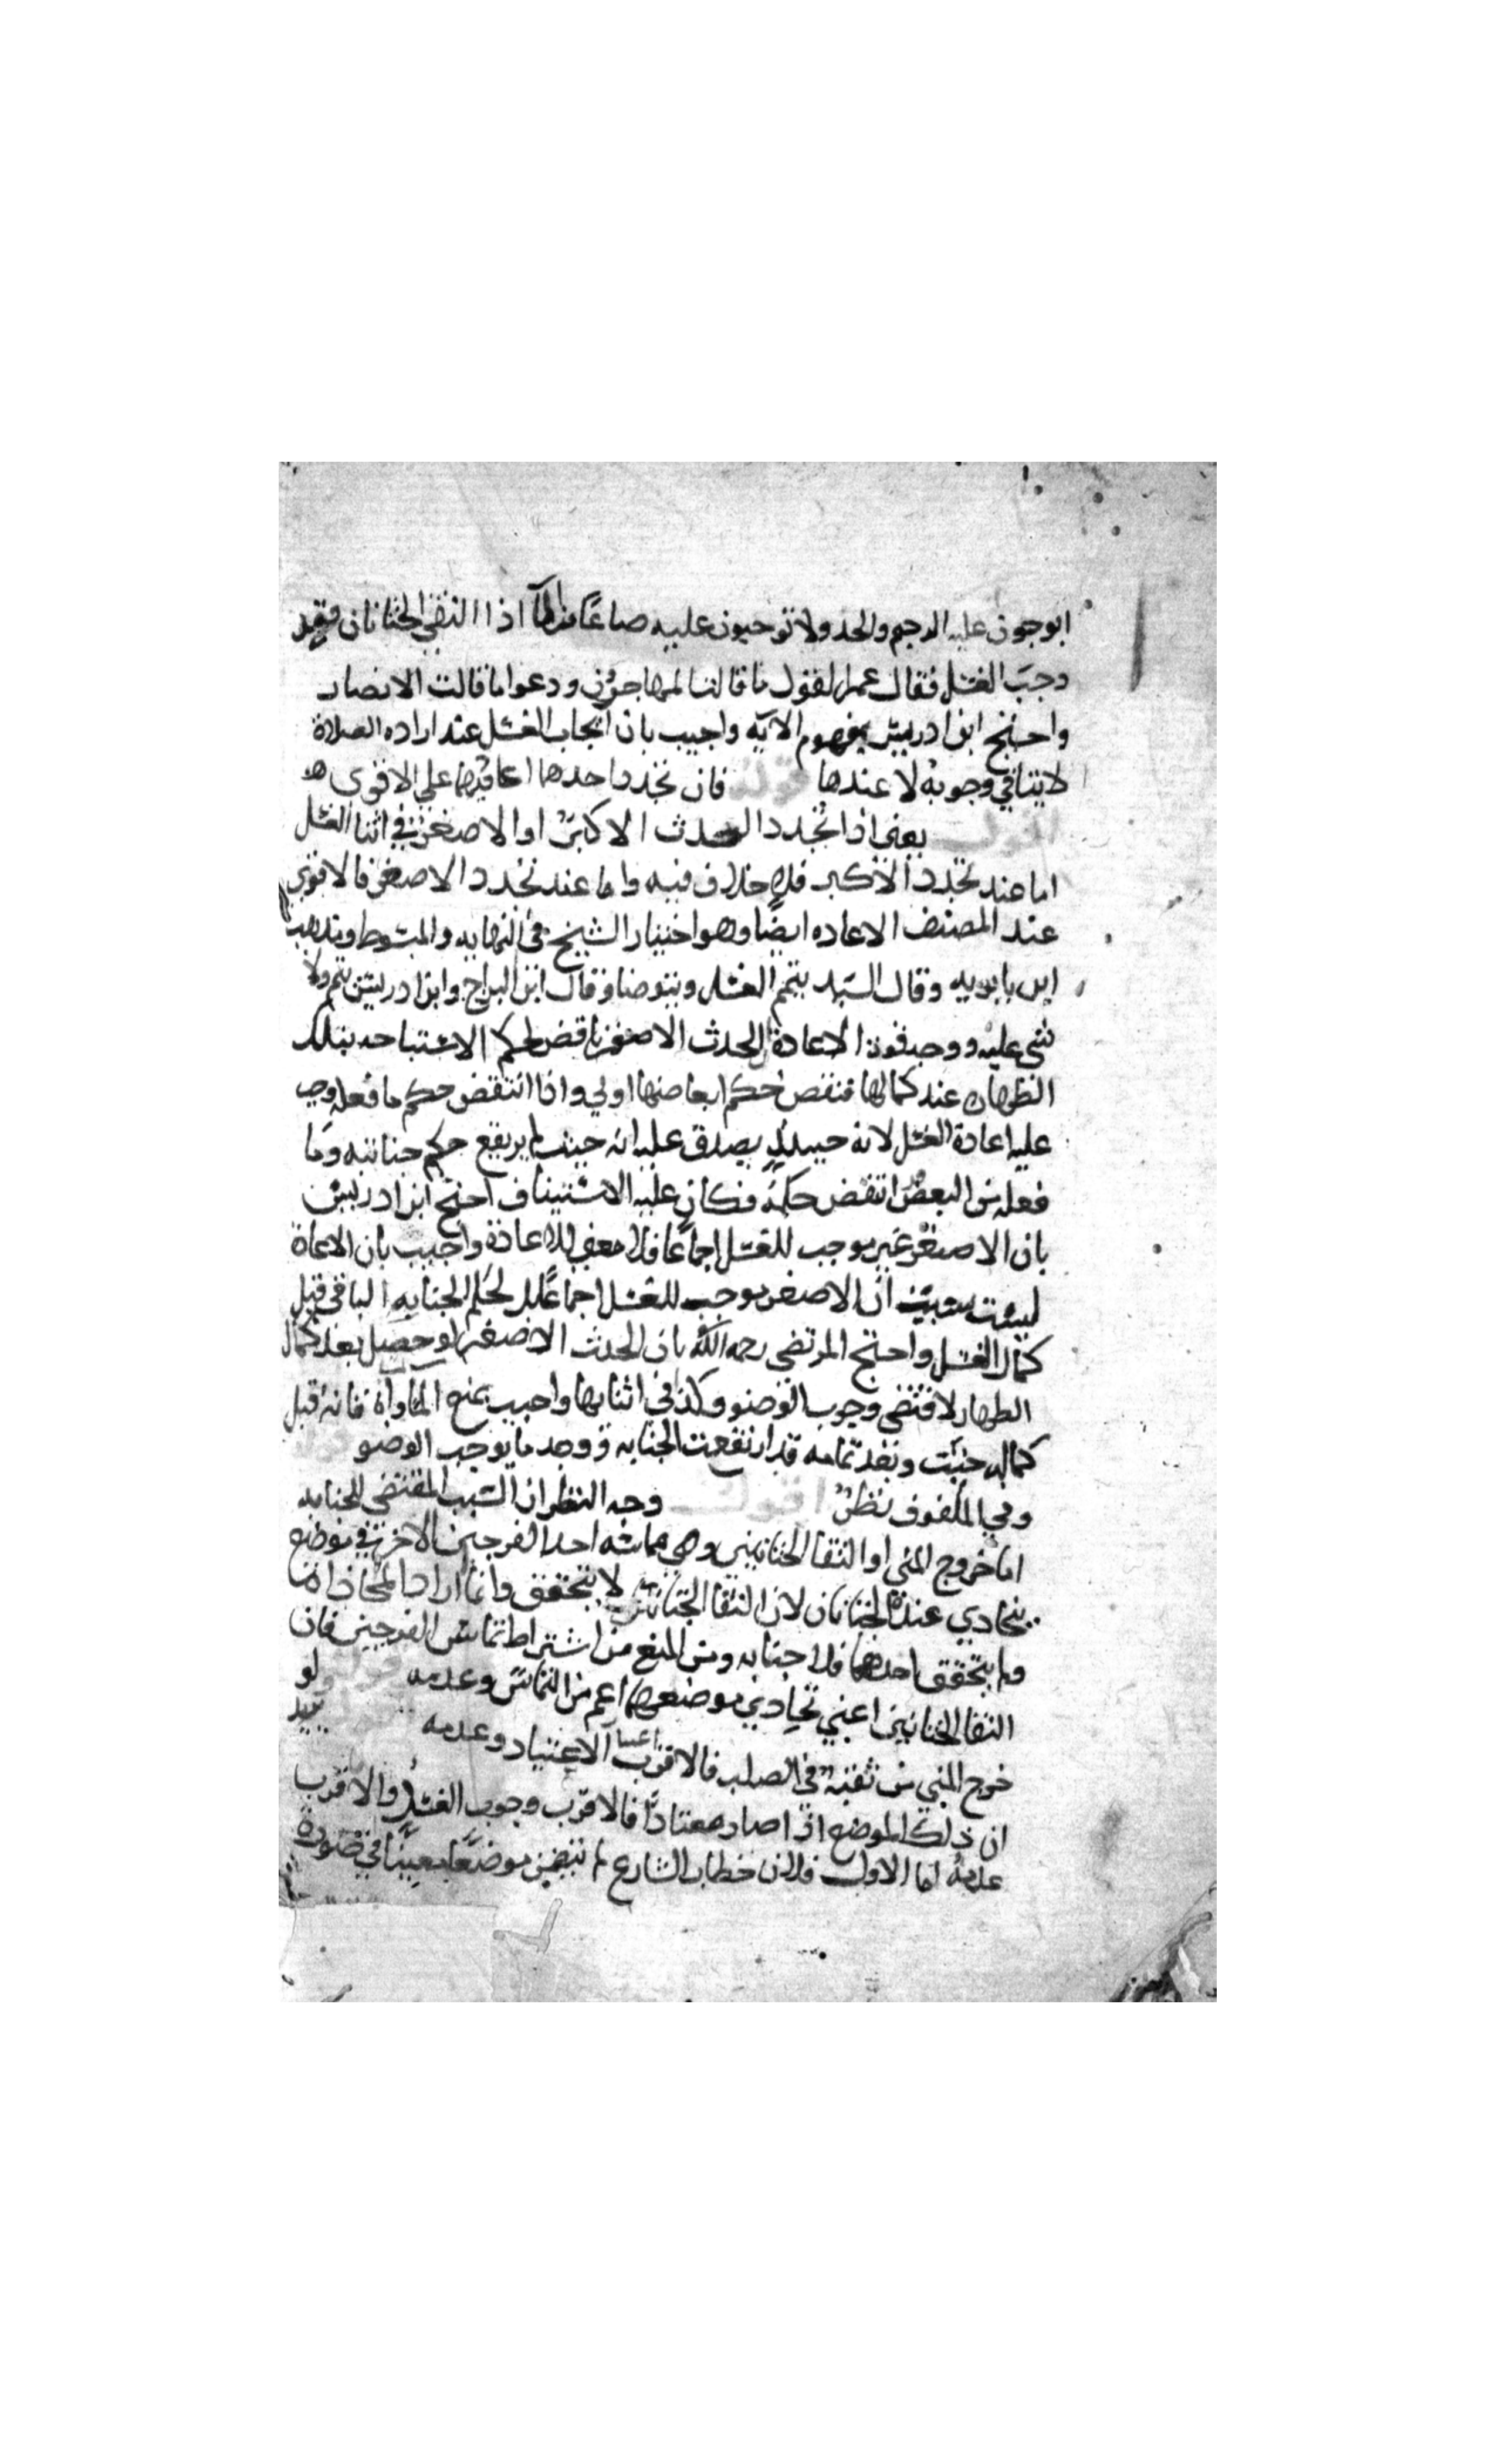 ابوجبون عليه الرجم والحد ولا توجبون عليه صاعًا من الما اذا التقى الختانان فقد
وجب الغسل فقال عمر القول ما قالت المهاجرون ودعوا ما قالت الانصار
واحتج ابن ادريس بمفهوم الآيه واجيب بان ايجاب الغسل عند اراده الصلاة
لا ينافي وجوبه لا عندها قوله فان تجدد احدها اعاد فيهما علي الاقوى
اقول يعني اذا تجدد الحدث الاكبر او الاصغر في اثنا الغسل
اما عند تجدد الاكبر فلا خلاف فيه واما عند تجدد الاصغر فالاقوى
عند المصنف الاعاده ايضًا وهو اختيار الشيخ في النهايه والمبسوط ومذهب
ابن بابويه وقال السيد يتم الغسل ويتوضا وقال ابن البراج وابن ادريس يتم ولا
شي عليه ووجه قوة الاعادة ان الحدث الاصغر ناقض لحكم الاستباحه بتلك
الطهاره عند كمالها فنقض حكم ابعاضها اولي واذا انتقض حكم ما فعله وجب
عليه اعادة الغسل لانه حينئذٍ يصدق عليه انه جنب لم يرتفع حكم جنابته وما
فعله من البعض انتقض حكمه فكان عليه الاستيناف احتج ابن ادريس
بان الاصغر غير موجب للغسل اجماعًا فلا معنى للاعادة واجيب بان الاعادة
ليست بسبب ان الاصغر موجب للغسل اجماعًا بل لحكم الجنابه الباقي قبل
كمال الغسل واحتج المرتضى رحمه الله بان الحدث الاصغر لو حصل بعد كمال
الطهاره لاقتضى وجوب الوضو وكذا في اثنايها واجيب بمنع المساواة فانه قبل
كماله جنب وبعد تمامه قد ارتفعت الجنابه ووجد ما يوجب الوضو قوله
وفي الملفوف نظر اقول وجه النظر ان السبب المقتضي للجنابه
اما خروج المني او التقا الختانين وهي مماسه احد الفرجين الاخر في موضع
يتحاذي عنده الختانان لان التقا الختانين لا يتحقق وانما اراد المحاذاة
ولم يتحقق احدهما فلا جنابه ومن المنع من اشتراط تماس الفرجين فان
التقا الختانين اعني تحاذي موضعهما اعم من التماس وعدمه قوله ولو
خرج المني من ثقبه في الصلب فالاقرب اعتبار الاعتياد وعدمه اقول يريد
ان ذلك الموضع اذا صار معتادًا فالاقرب وجوب الغسل والا الاقرب
عدمه اما الاول فلان خطاب الشارع لم يتضمن موضعًا معينًا في ضرورة